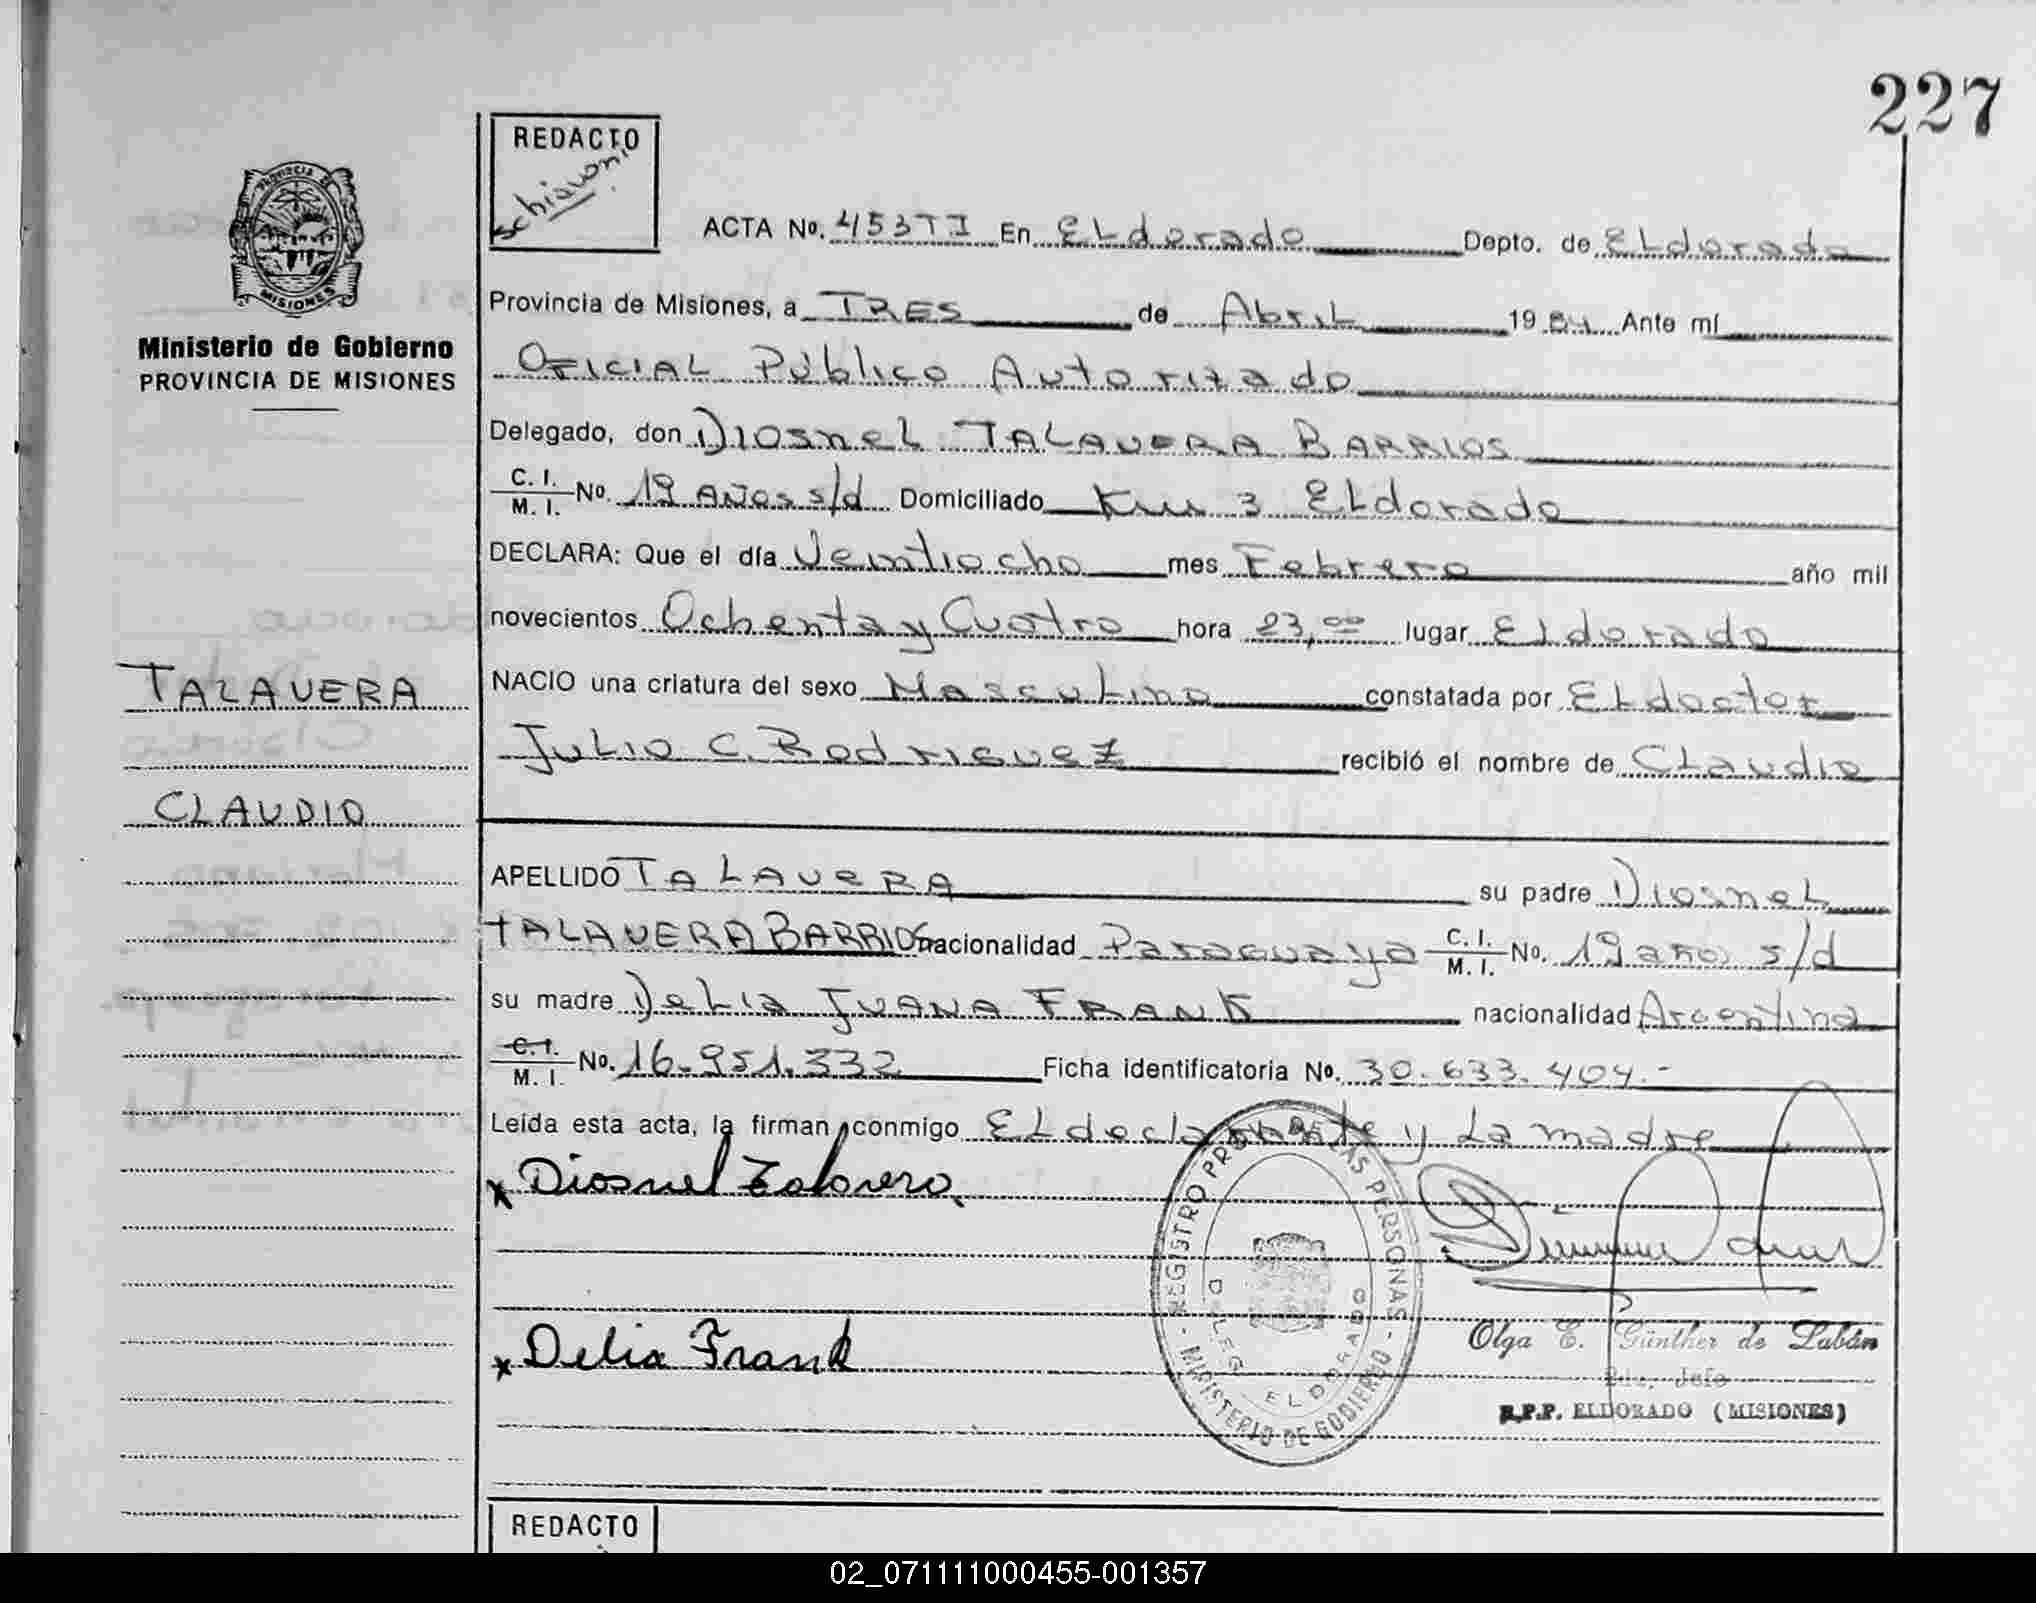 227
REDACTO
Schiavoni
ACTA No. 453TI En ELdorado Depto. de ELdorado
PROVINCIA DE MISIONES
Provincia de Misiones, a TRES de Abril 1984 Ante mí
Ministerio de Gobierno
PROVINCIA DE MISIONES
OFICIAL Público Autorizado
Delegado, don Diosnel TALAVERA BARRIOS
C. I. M. I. No. 19 AÑOS s/d Domiciliado Km 3 ELdorado
DECLARA: Que el día Veintiocho mes Febrero año mil
novecientos Ochenta y Cuatro hora 23,00 lugar ELdorado
TALAVERA
NACIO una criatura del sexo Masculino constatada por EL doctor
Julio C. Rodriguez recibió el nombre de Claudio
CLAUDIO
APELLIDO TALAVERA su padre Diosnel
TALAVERA BARRIOS nacionalidad Paraguaya C. I. M. I. No. 19 años s/d
su madre Delia JUANA FRANK nacionalidad Argentina
C. I. M. I. No. 16.951.332 Ficha identificatoria No. 30.633.404.-
Leída esta acta, la firman conmigo EL declarante y La madre
x Diosnel Talavera
REGISTRO PROV. DE LAS PERSONAS - MINISTERIO DE GOBIERNO -
DELEG. ELDORADO
x Delia Frank
Olga E. Günther de Labán
2da. Jefe
R.P.P. ELDORADO (MISIONES)
REDACTO
02_071111000455-001357